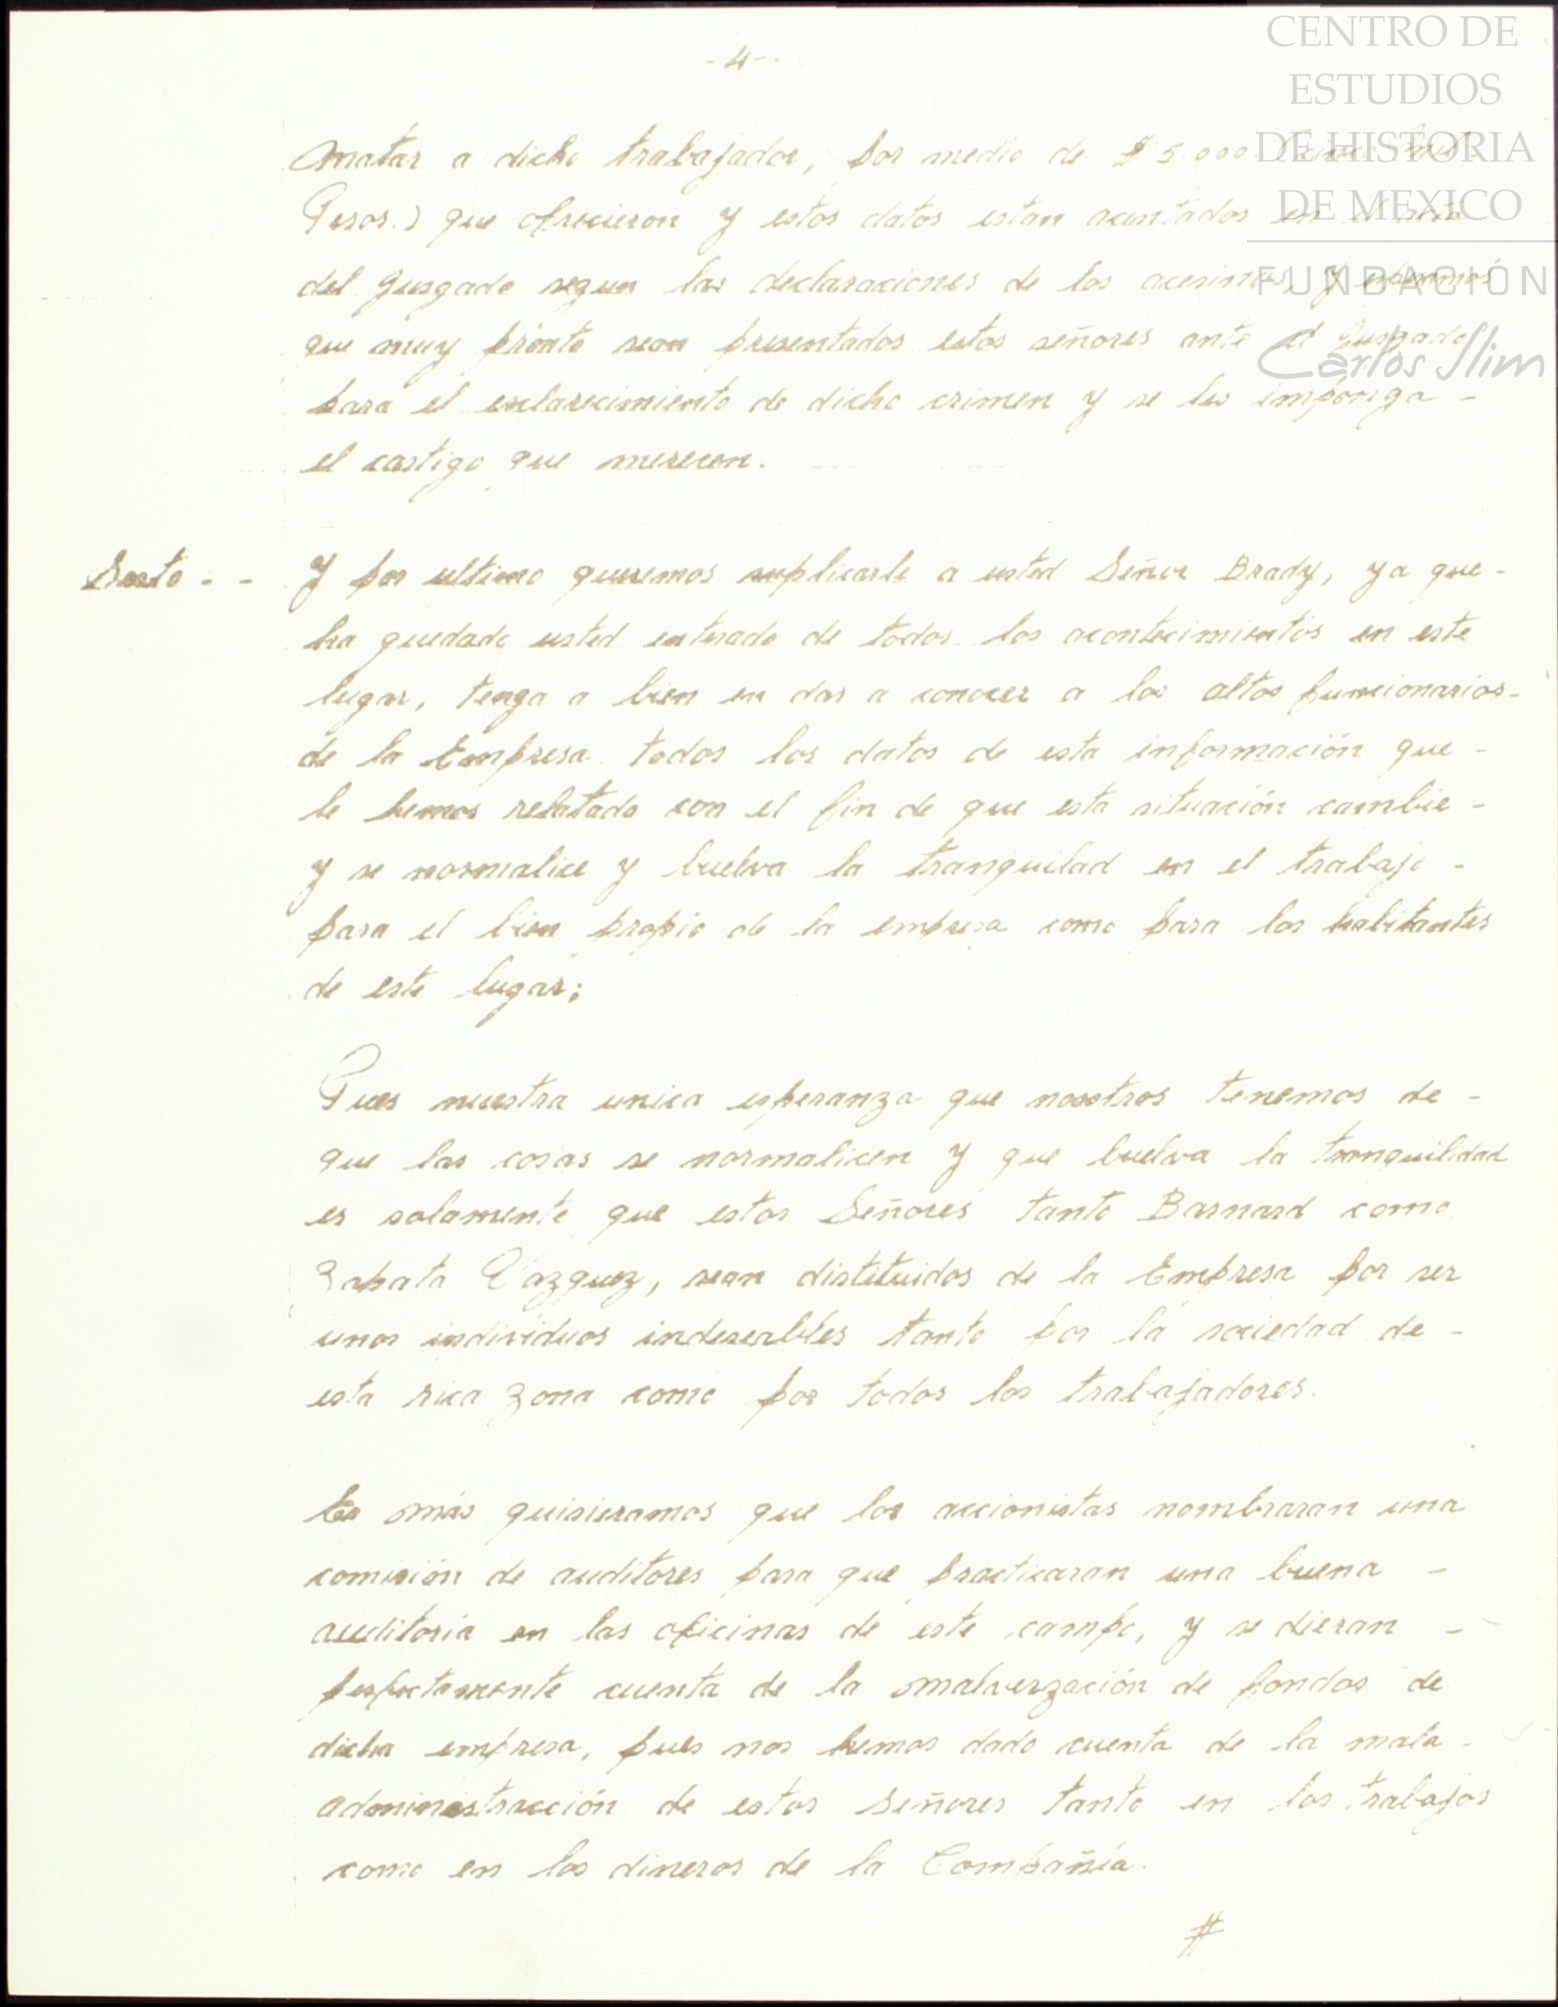 -4-
CENTRO DE
ESTUDIOS
DE HISTORIA
DE MEXICO
FUNDACIÓN
Carlos Slim
matar a dicho trabajador, por medio de $5.000
Pesos.) que ofrecieron y estos datos estan acentados en el acta
del Juzgado segun las declaraciones de los acesinos, y esperamos
que muy prónto sean presentados estos señores ante el Juzgado
para el esclarecimiento de dicho crimen y se les impónga -
el castigo que merecen.
Sexto - - Y por ultimo queremos suplicarle a usted Señor Brady, ya que -
ha quedado usted enterado de todos los acontecimientos en este
lugar, tenga a bien en dar a conocer a los altos funcionarios -
de la Empresa todos los datos de esta información que -
le hemos relatado con el fin de que esta situación cambie -
y se normalice y buelva la tranquilad en el trabajo -
para el bien propio de la empresa como para los habitantes
de este lugar;
Pues nuestra unica esperanza que nosotros tenemos de -
que las cosas se normalicen y que buelva la tranquilidad
es solamente que estos Señores tanto Barnard como
Zapata Vazquez, sean distituidos de la Empresa por ser
unos individuos indeseables tanto por la sociedad de -
esta rica zona como por todos los trabajadores.
Es más quisieramos que los accionistas nombraran una
comisión de auditores para que practicaran una buena -
auditoria en las oficinas de este campo, y se dieran -
perfectamente cuenta de la malverzación de fondos de
dicha empresa, pues nos hemos dado cuenta de la mala -
administracción de estos Señores tanto en los trabajos
como en los dineros de la Compañía.
#